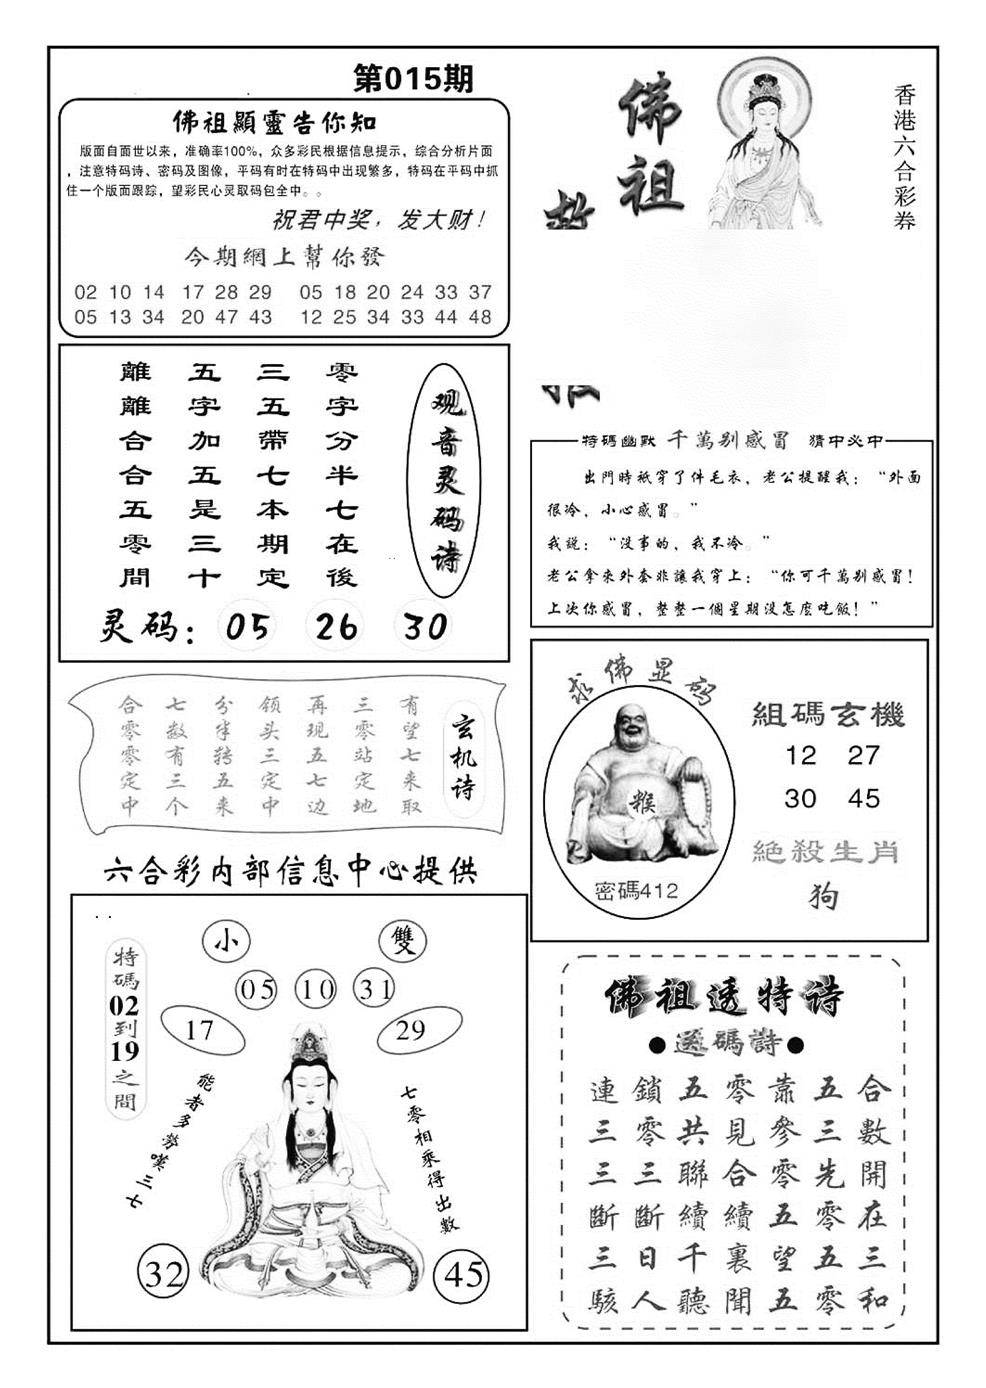 第015期
佛祖顯靈告你知
版面自面世以来，准确率100%，众多彩民根据信息提示，综合分析片面
，注意特码诗、密码及图像，平码有时在特码中出现繁多，特码在平码中抓
住一个版面跟踪，望彩民心灵取码包全中。。
祝君中奖，发大财！
今期網上幫你發
02 10 14 17 28 29 05 18 20 24 33 37
05 13 34 20 47 43 12 25 34 33 44 48
佛祖
香港六合彩券
观音灵码诗
零字分半七在後
三五帶七本期定
五字加五是三十
離離合合五零間
灵码：05 26 30
特碼幽默 千萬别感冒 猜中必中
出門時祇穿了件毛衣，老公提醒我：“外面
很冷，小心感冒。”
我説：“没事的，我不冷。”
老公拿來外套非讓我穿上：“你可千萬别感冒！
上次你感冒，整整一個星期没怎麽吃飯！”
玄机诗
有望七来取
三零站定地
再现五七边
领头三定中
分半转五来
七数有三个
合零零定中
六合彩内部信息中心提供
求佛显码
猴
密碼412
組碼玄機
12 27
30 45
絕殺生肖
狗
特碼02到19之間
小
雙
05 10 31
17
29
能者多勞嘆三七
七零相乘得出數
32
45
佛祖透特诗
●送碼詩●
連鎖五零靠五合
三零共見參三數
三三聯合零先開
斷斷續續五零在
三日千裏望五三
駭人聽聞五零和